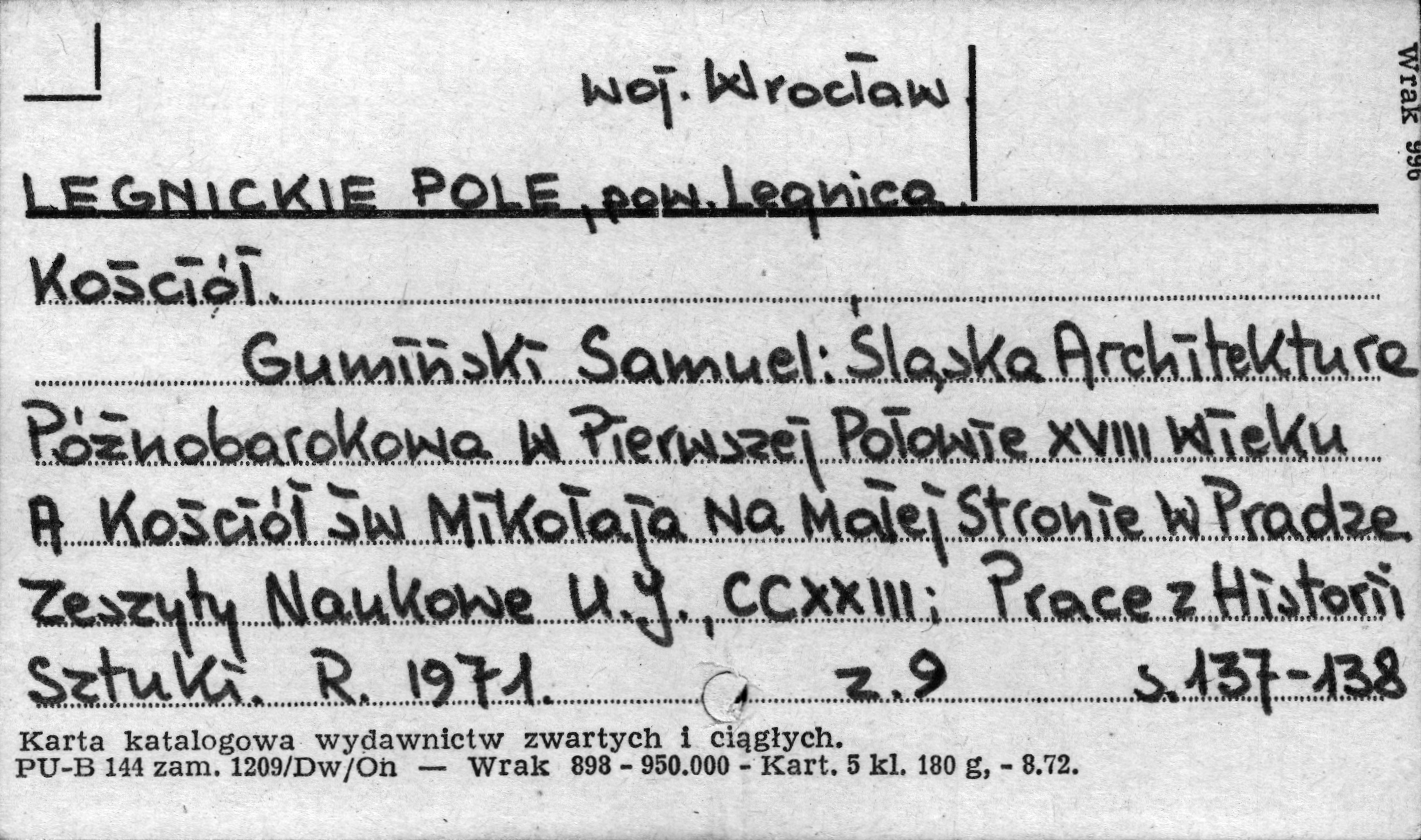 woj. Wrocław
Wrak 996
LEGNICKIE POLE, pow. Legnica
Kościół.
Gumiński Samuel: Śląska Architektura
Póżnobarokowa w Pierwszej Połowie XVIII Wieku
A Kościół św Mikołaja Na Małej Stronie w Pradze
Zeszyty Naukowe U.J., CCXXIII; Prace z Historii
Sztuki. R. 1971. z. 9 s. 137-138
Karta katalogowa wydawnictw zwartych i ciągłych.
PU-B 144 zam. 1209/Dw/On — Wrak 898 - 950.000 - Kart. 5 kl. 180 g, - 8.72.